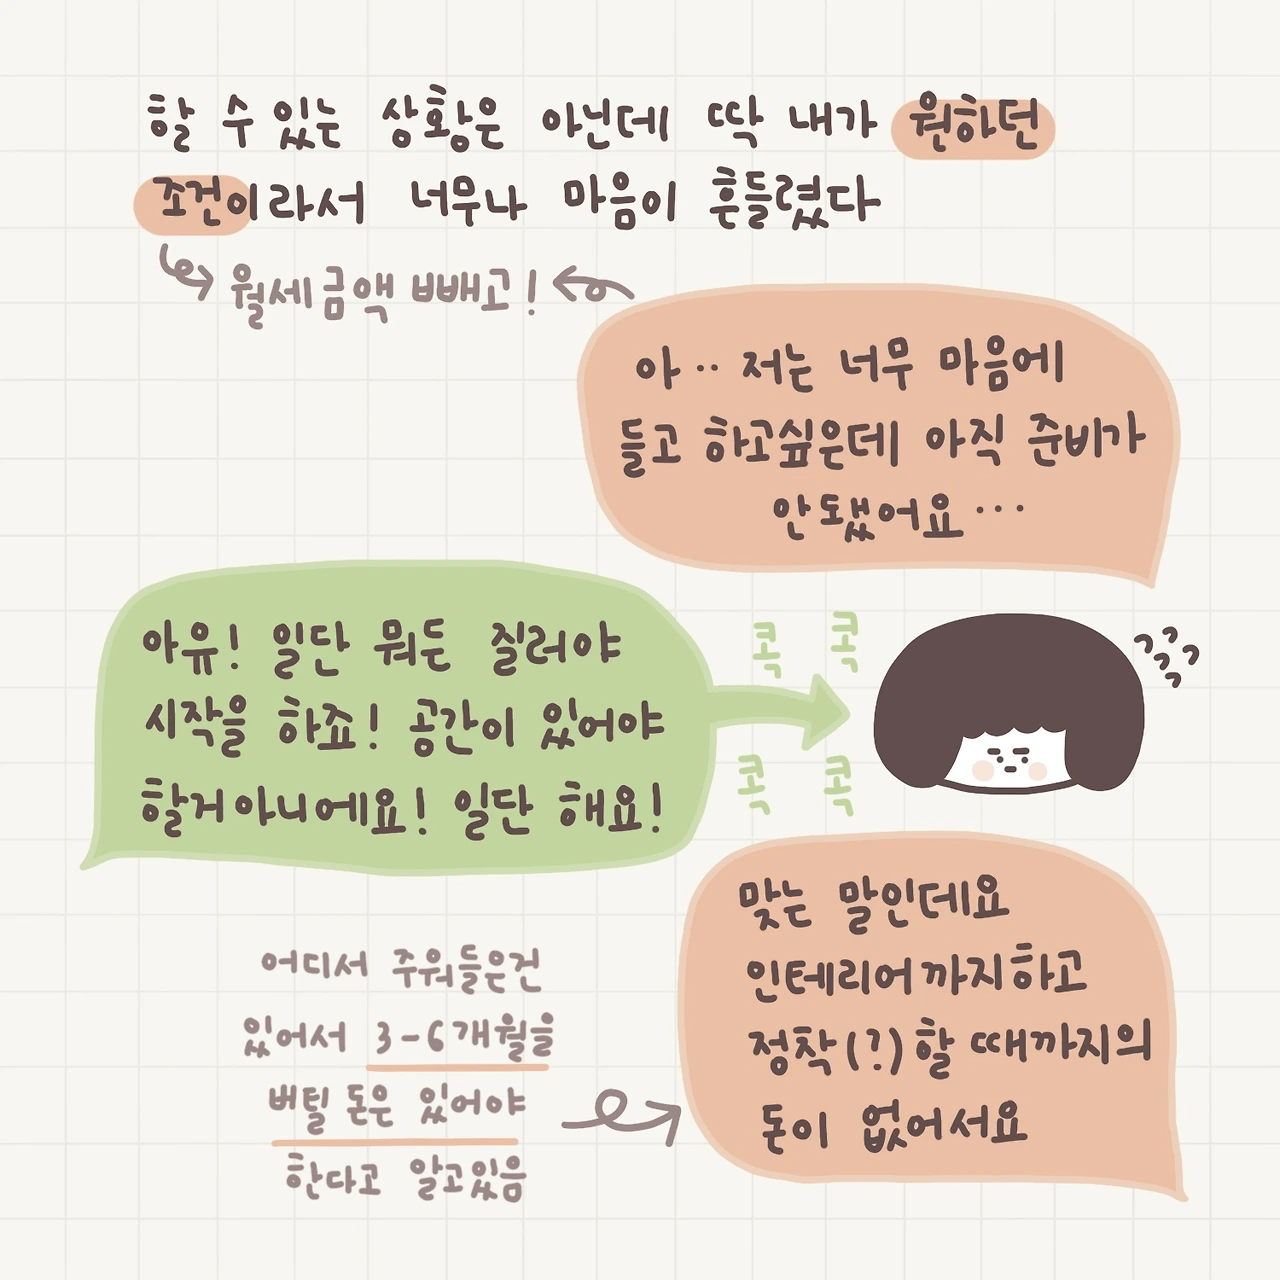 할 수 있는 상황은 아닌데 딱 내가 원하던
조건이라서 너무나 마음이 흔들렸다
월세금액 빼고!
아.. 저는 너무 마음에
들고 하고싶은데 아직 준비가
안됐어요...
아유! 일단 뭐든 질러야
시작을 하죠! 공간이 있어야
할거아니에요! 일단 해요!
콕 콕
콕 콕
맞는 말인데요
인테리어까지하고
정착(?)할 때까지의
돈이 없어서요
어디서 주워들은건
있어서 3-6개월을
버틸 돈은 있어야
한다고 알고있음